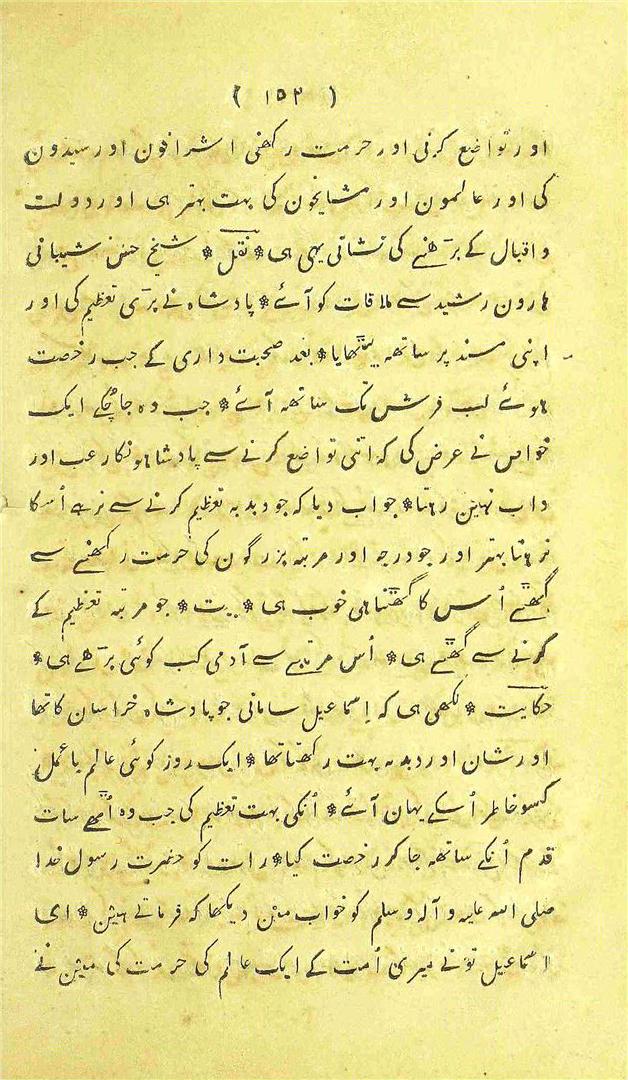 ( ۱۵۲ )
اور تواضع کرنی اور حرمت رکھنی اشرافون اور سیدون
کی اور عالمون اور مشایخون کی بہت بہتر ہی اور دولت
و اقبال کے بڑھنے کی نشانی یہی ہی * نقل * شیخ حسن شیبانی
ہارون رشید سے ملاقات کو آئے * پادشاہ نے بڑی تعظیم کی اور
اپنی مسند پر ساتھہ بیٹھایا * بعد صحبت داری کے جب رخصت
ہوئے لب فرش تک ساتھہ آئے * جب وہ جا چُکے ایک
خواص نے عرض کی کہ اتنی تواضع کرنے سے پادشاہونکا رعب اور
داب نہین رہتا * جواب دیا کہ جو دبدبہ تعظیم کرنے سے نرہے اُسکا
نرہنا بہتر اور جو درجہ اور مرتبہ بزرگون کی حرمت رکھنے سے
گھٹے اُس کا گھٹنا ہی خوب ہی * بیت * جو مرتبہ تعظیم کے
کرنے سے گھٹے ہی * اُس مرتبے سے آدمی کب کوئی بڑھے ہی *
حکایت * لکھی ہی کہ اِسماعیل سامانی جو پادشاہ خراسان کا تھا
اور شان اور دبدبہ بہت رکھتا تھا * ایک روز کوئی عالم با عمل
کسو خاطر اُسکے یہان آئے * اُنکی بہت تعظیم کی جب وہ اُٹھے سات
قدم اُنکے ساتھہ جا کر رخصت کیا * رات کو حضرت رسول خدا
صلی اللہ علیہ و آلہ و سلم کو خواب مین دیکھا کہ فرماتے ہین * ای
اسماعیل تونے میری اُمت کے ایک عالم کی حرمت کی مین نے